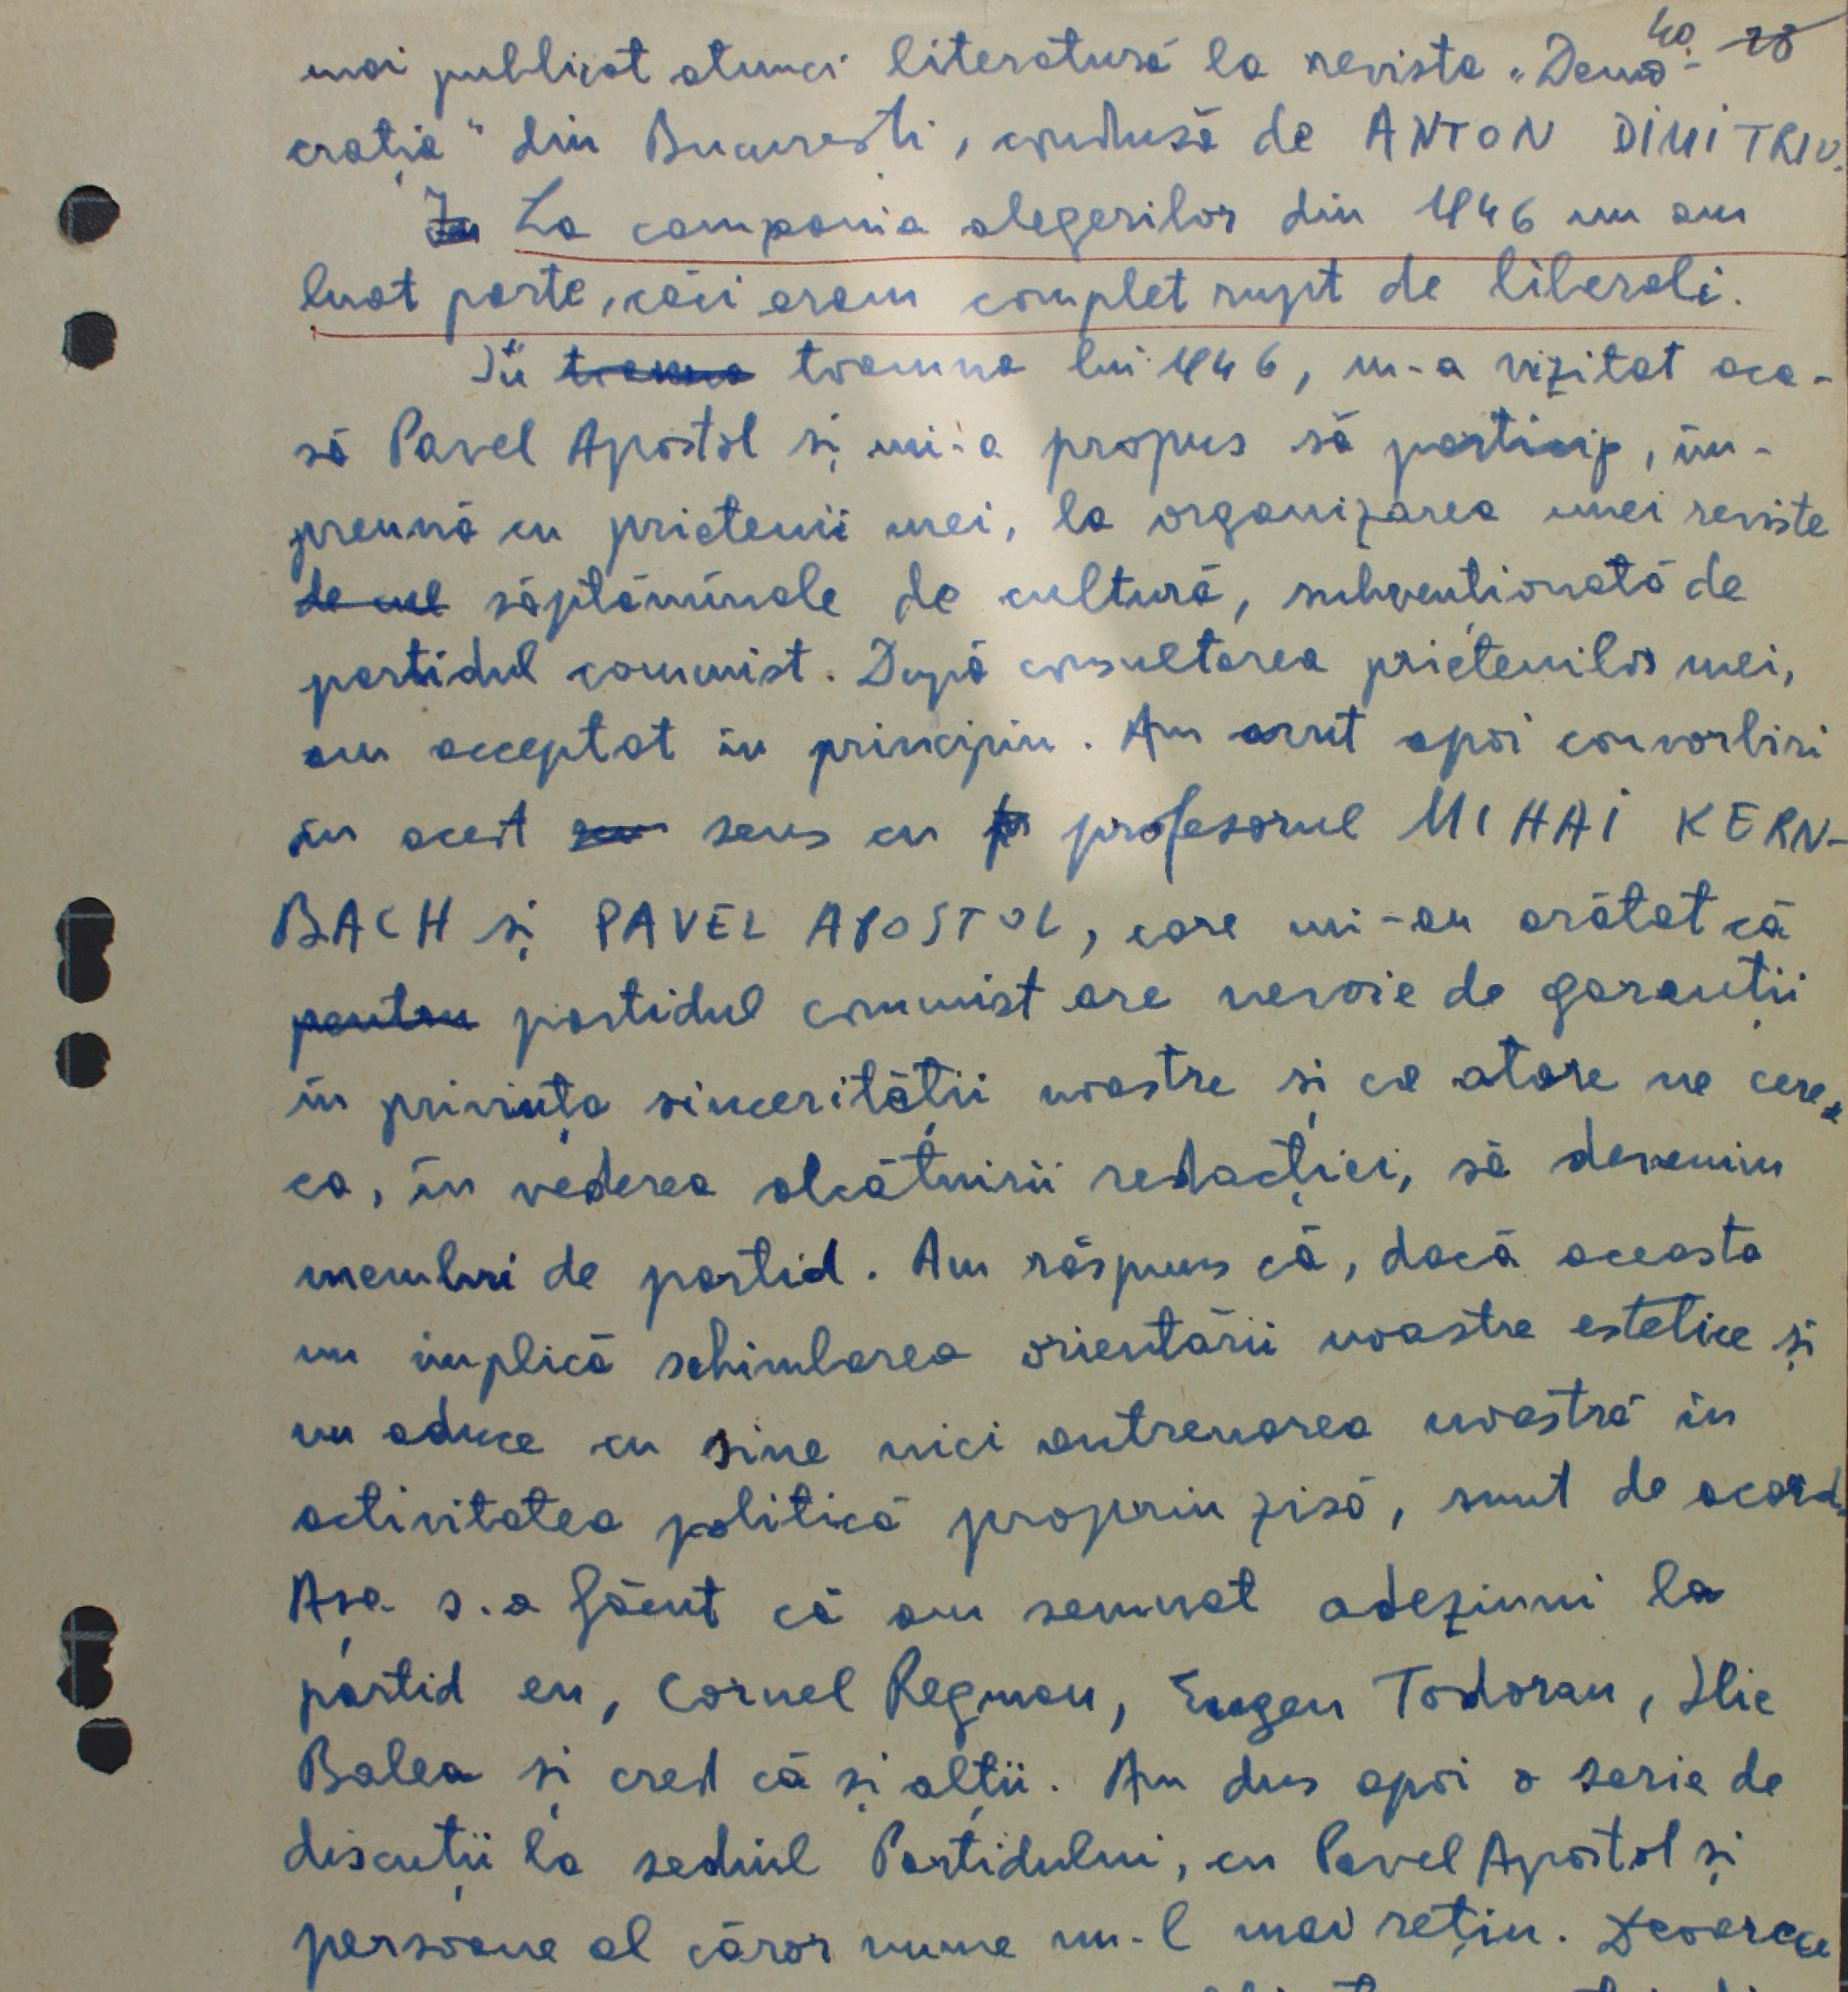 40. 28
mai publicat atunci literatură la revista „Demo-
crația" din București, condusă de ANTON DIMITRIU.
La campania alegerilor din 1946 nu am
luat parte, căci eram complet rupt de liberali.
În toamna lui 1946, m-a vizitat aca-
să Pavel Apostol și mi-a propus să particip, îm-
preună cu prietenii mei, la organizarea unei reviste
de cul săptămînale de cultură, subvenționată de
partidul comunist. După consultarea prietenilor mei,
am acceptat în principiu. Am avut apoi convorbiri
în acest sens cu profesorul MIHAI KERN-
BACH și PAVEL APOSTOL, care mi-au arătat că
pentru partidul comunist are nevoie de garanții
în privința sincerității noastre și ca atare ne cere,
ca, în vederea alcătuirii redacției, să devenim
membri de partid. Am răspuns că, dacă aceasta
nu implică schimbarea orientării noastre estetice și
nu aduce cu sine nici antrenarea noastră în
activitatea politică propriu zisă, sunt de acord.
Așa s-a făcut că am semnat adeziuni la
partid eu, Cornel Regman, Eugen Todoran, Ilie
Balea și cred că și alții. Am dus apoi o serie de
discuții la sediul Partidului, cu Pavel Apostol și
persoane al căror nume nu-l mai rețin. Deoarece